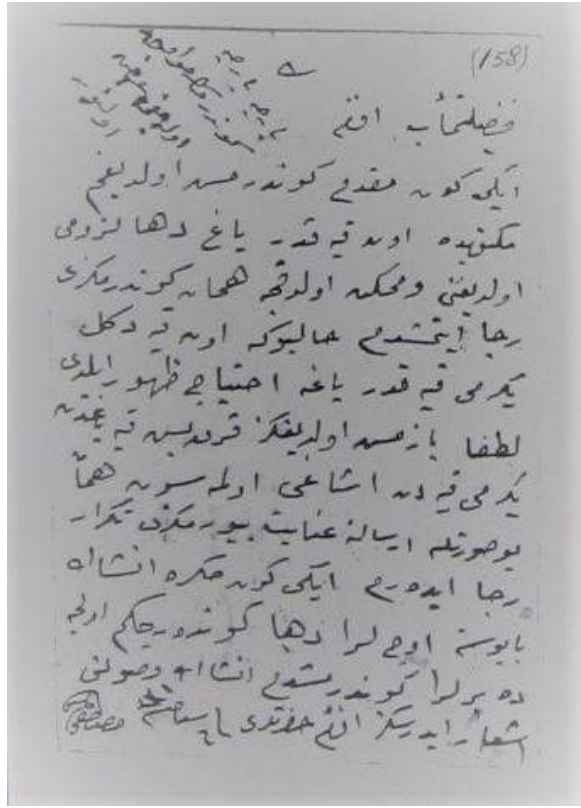 (158)
فضيلتمآب افندم
ايكى كون مقدم كوندرمش اولديغم
مكتوبده اون قيه قدر ياغ دها لزومى
اولديغنى وممكن اولدقجه همان كوندرمكزى
رجا ايتمشدم حالبوكه اون قيه دكل
يكرمى قيه قدر ياغه احتياج ظهور ايلدى
لطفا يازمش اولديغكز قيه ياغدن
يكرمى قيه دن اشاغى اولمه سون همان
بوصورتله ارساله عنايت بيورمكزى تكرار
رجا ايده رم ايكى كون صكره انشاالله
بايوسته اوچ ليرا دها كوندره جكم اولجه
ده بر ليرا كوندرمشدم انشاالله وصولنى
اشعار ايدرسكز افندم حضرتلرى